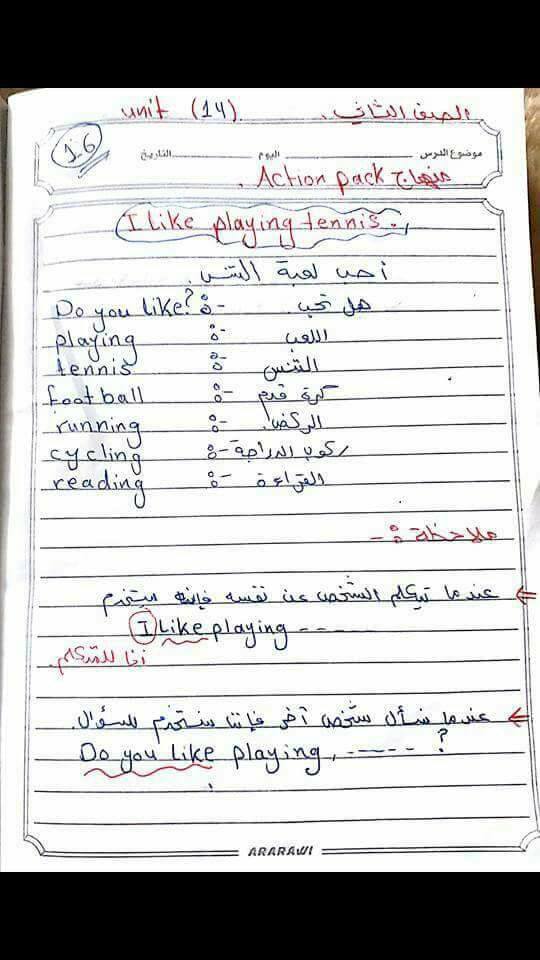 unit (14). الصف الثاني.
J.6
موضوع الدرس اليوم التاريخ
منهاج Action pack.
I like playing tennis.
أحب لعبة التنس.
Do you like? :- هل تحب.
playing :- اللعب
tennis :- التنس
football :- كرة قدم
running :- الركض.
cycling :- ركوب الدراجة
reading :- القراءة
ملاحظة :-
عندما يتكلم الشخص عن نفسه فإنه يستخدم
I like playing -----
أنا للمتكلم.
عندما نسأل شخص آخر فإننا نستخدم للسؤال.
Do you like playing, ----- ?
ARARAWI